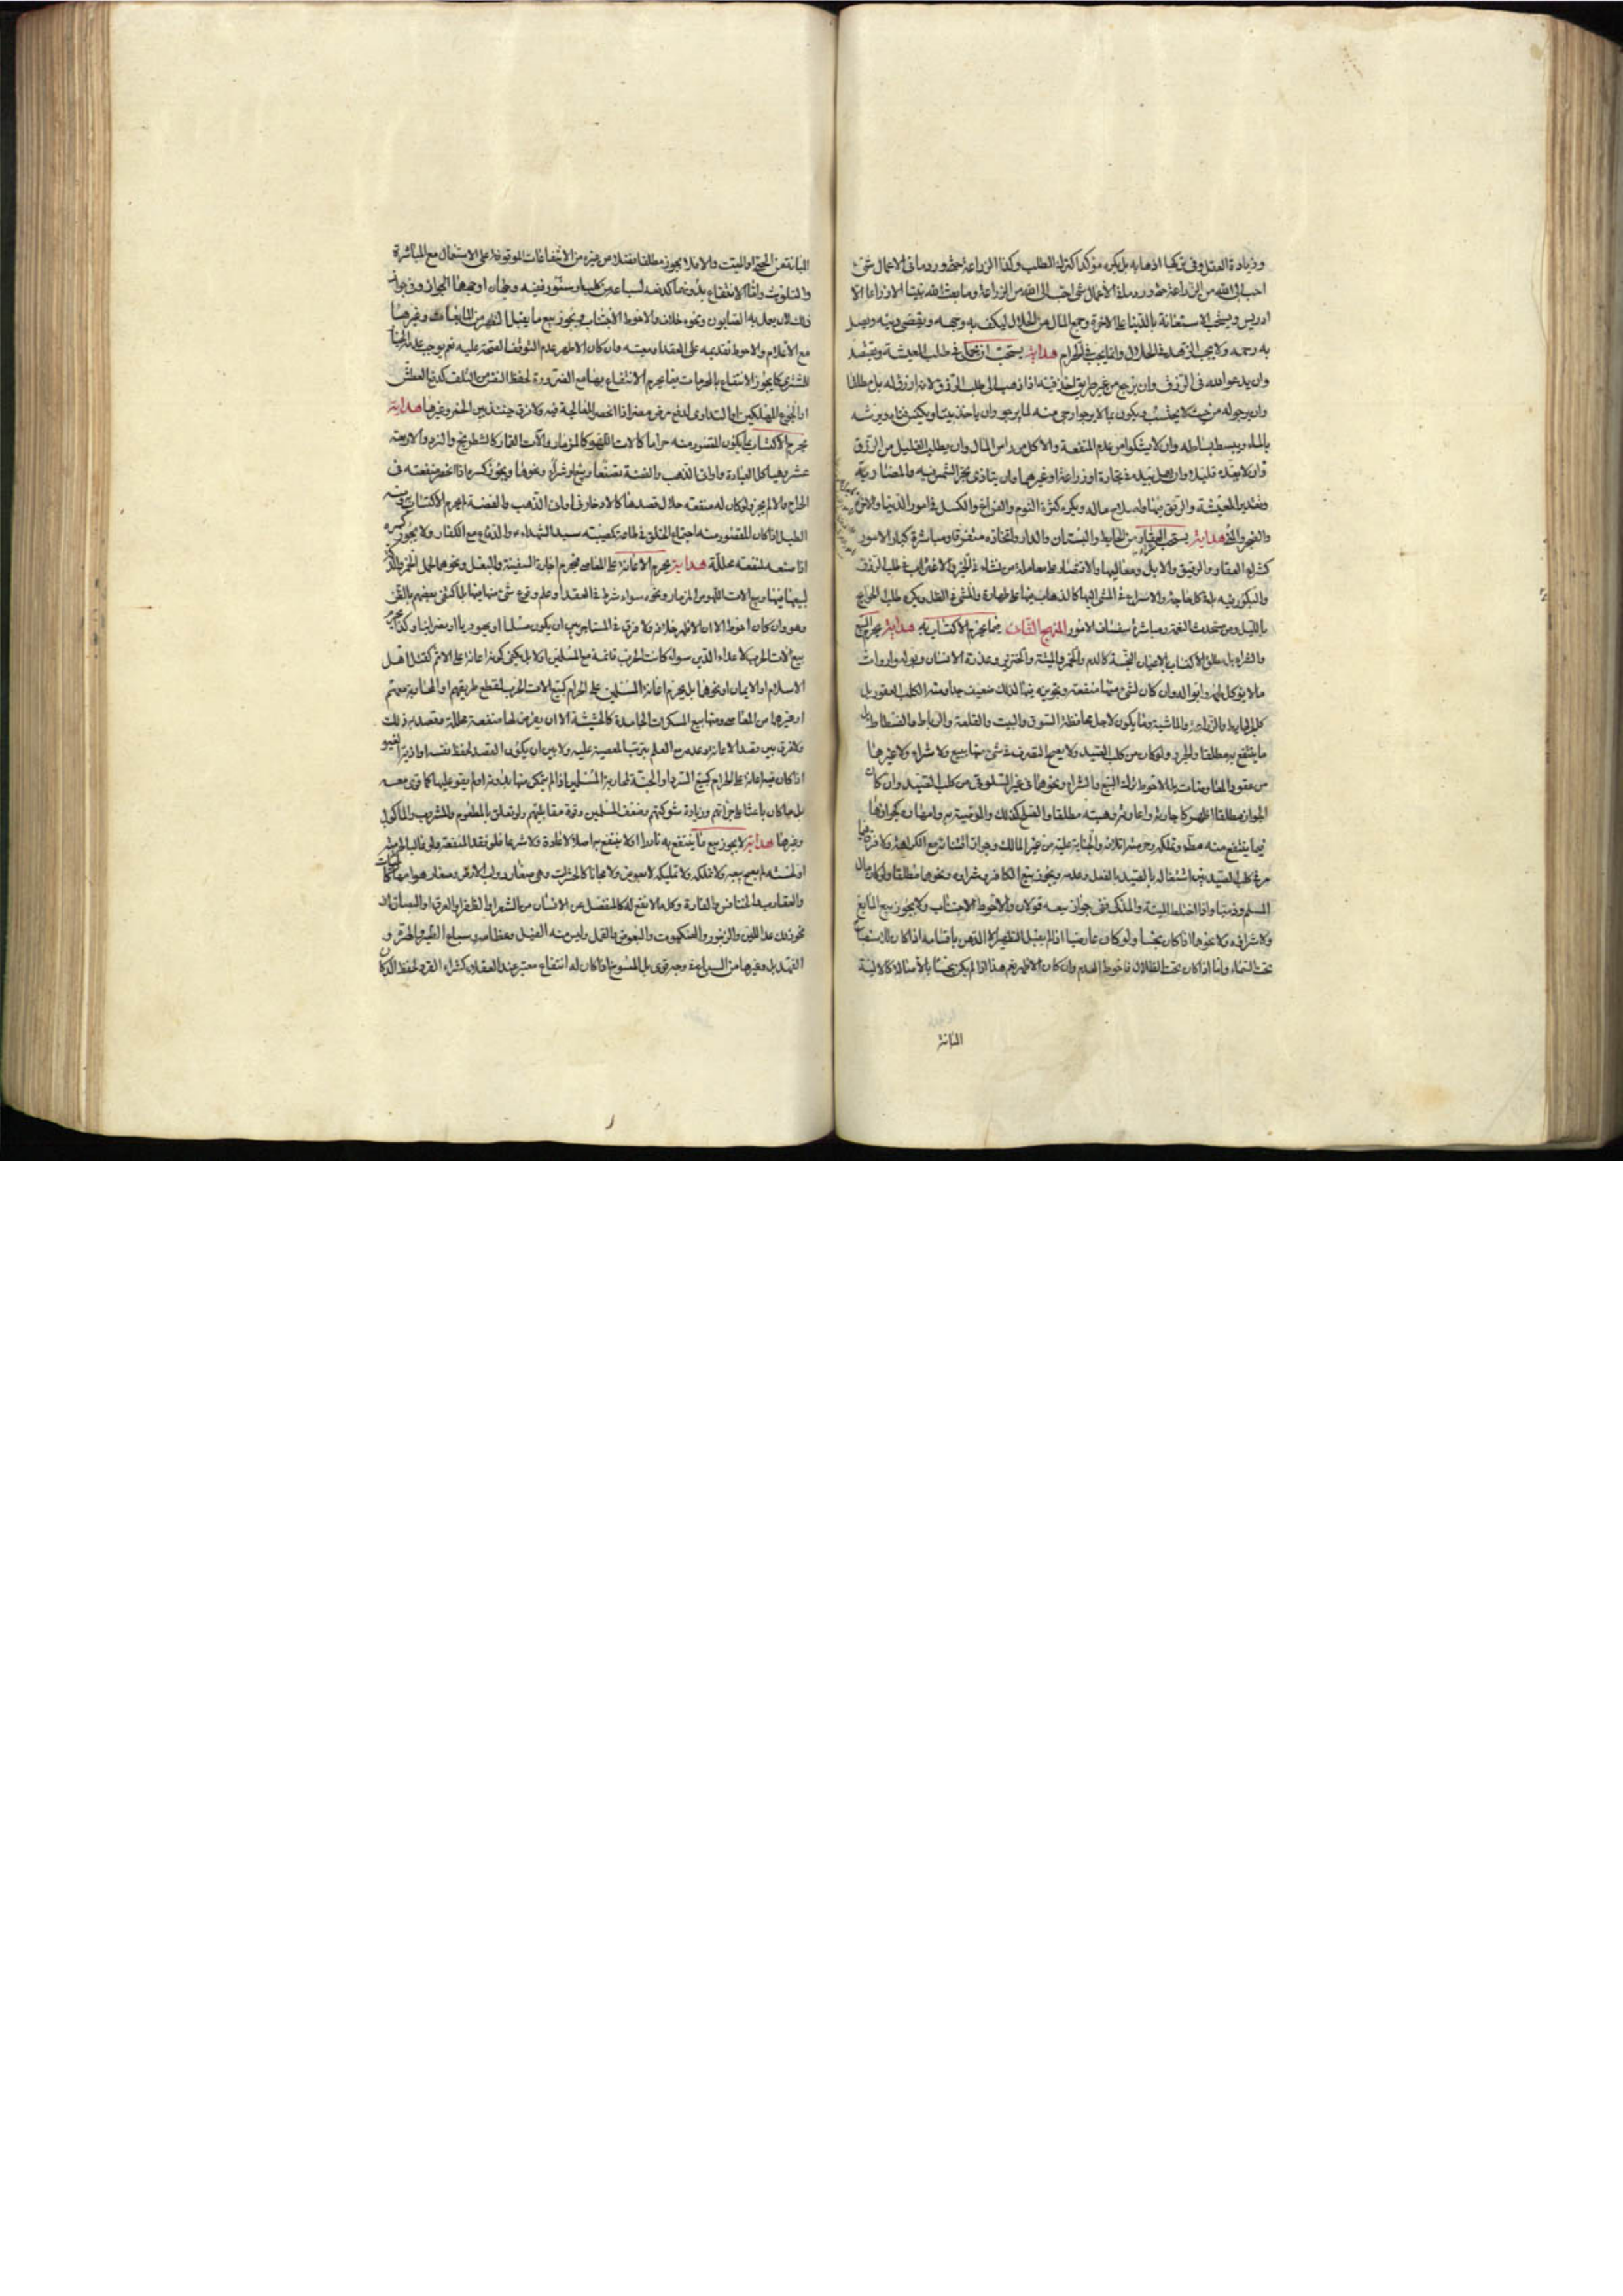 وزيادة العقل وفى تركها اذهابه بل يكره مؤكدا كترك الطلب وكذا الزراعة حتى ورد ما فى الاعمال شئ
احب الى الله من الزراعة حتى ورد ما فى الاعمال شئ احب الى الله من الزراعة وما بعث الله نبيا الا زراعا الا
ادريس ويستحب الاستعانة بالدنيا على الاخرة وجمع المال من الحلال ليكف به وجهه ويقضى دينه ويصل
به رحمه ولا يجب الزهد فى الحلال وانما يجب فى الحرام هداية يستحب ان فى طلب المعيشة ويقتصد
وان يدعو الله فى الرزق وان يرجع من غير طريق اخذ فيه اذا ذهب الى طلب الرزق لانه ارزق له بل مطلقا
وان يرجو له من حيث لا يحتسب ويكون بما لا يرجو ارجى منه لما يرجو وان ياخذ بيتا ويكنس فناءه ويرشه
بالماء ويبسط بساطه وان لا يشكو من عدم المنفعة والاكل من راس المال وان يطلب القليل من الرزق
وان لا يعده قليلا وان يعمل بيده فى تجارة او زراعة او غيرهما وان
وتقدير المعيشة والرفق بها واصلاح ماله ويكره كثرة النوم والفراغ والكسل فى امور الدنيا والاخرة
والضجر هداية يستحب العقار من الحايط والبستان والدار واتخاذه متفرقا ومباشرة كبار الامور
كشراء العقار والرقيق والابل ومعاليها والاقتصار على معاملة من نشاء فى الخير والاغتراب فى طلب الرزق
والبكور فيه بل فى كل حاجة والاسراع فى المشى اليها كالذهاب فيها على طهارة والمشى فى الظل ويكره طلب الحوايج
بالليل ومن مستحدث النعمة ومباشرة سفساف الامور المنهج الثانى فيما يحرم الاكتساب به هداية يحرم البيع
والشراء بل مطلق الاكتساب بالاعيان النجسة كالدم والخمر والميتة والخنزير وعذرة الانسان وبوله وارواث
ما لا يؤكل لحمه وابوالها وان كان لشئ منها منفعة وتجويزه فيها لذلك ضعيف جدا ومنه الكلب العقور بل
كلب الحايط والزراعة والماشية وما يكون لاجل محافظة السوق والبيت والقلعة والرباط والفسطاط بل
ما ينتفع به مطلقا والجرو ولو كان من كلب الصيد ولا يصح التصرف فى شئ منها ببيع ولا شراء ولا غيرهما
من عقود المعاوضات بل الاحوط ترك البيع والشراء ونحوهما فى غير السلوقى من كلب الصيد وان كان
الجواز مطلقا اظهر كاجارته واعارته وهبته مطلقا والصلح كذلك والوصية به وامهار كجوازها
فيما ينتفع منه مطلقا وتملكه وحرمة اتلافه والجناية عليه من غير المالك وجواز اقتنائه مع الكراهة ولا فرق
فى كلب الصيد بين اشتغاله بالصيد بالفعل وعدمه ويجوز بيع الكافر وشرائه ونحوهما مطلقا ولو كان مال
المسلم وذميا واذا اختلط الميتة والمذكى ففى جواز بيعه قولان والاحوط الاجتناب ولا يجوز بيع المايع
ولا شرائه ولا نحوها اذا كان نجسا ولو كان عارضيا اذا لم يقبل التطهير الا الدهن باقسامه اذا كان للاستصباح
تحت السماء واما اذا كان تحت الظلال فاحوط العدم وان كان الاظهر نعم هذا اذا لم يكن نجسا بالاصالة كالالية
المبانة
المبانة من الحى او الميت والا فلا يجوز مطلقا فضلا عن غيره من الانتفاعات الموقوفة على الاستعمال مع المباشرة
والتلويث واما الانتفاع بدونها كدفعه لسباع من كلب او سنور ففيه وجهان اوجههما الجواز وفى جواز
ذلك لان يعمل به الصابون ونحوه خلاف والاحوط الاجتناب ويجوز بيع ما يقبل التطهير من المايعات وغيرها
مع الاعلام والاحوط تقديمه على العقد او معيته وان كان الاظهر عدم التوقف الصحة عليه نعم يوجب عدمه الخيار
للمشترى كما يجوز الانتفاع بالمحرمات فيما يحرم الانتفاع بها مع الضرورة لحفظ النفس من التلف كدفع العطش
او الجوع المهلكين او التداوى لدفع مرض مضر اذا انحصر المعالجة فيه ولا فرق حينئذ بين الخمر وغيرها هداية
يحرم الاكتساب بما يكون المقصود منه حراما كالات اللهو كالمزمار والات القمار كالشطرنج والنرد والاربعة
عشر وهياكل العبادة واوانى الذهب والفضة تصنعا وبيعا وشراء ونحوها ويجوز كسره اذا انحصر منفعته فى
الحرام والا لم يجز ولو كان له منفعته حلال قصدها كالادخار فى اوانى الذهب والفضة لم يحرم الاكتساب به ومنه
الطبل اذا كان المقصود منه اجتماع الخلق فى اقامة تعزية سيد الشهداء والدفاع مع الكفار ولا يجوز كسره
اذا صنعه لمنفعة محللة هداية يحرم الاعانة على المعاصى فيحرم اجارة السفينة والبغل ونحوهما لحمل الخمر والدكان
لبيعها فيها وبيع الات اللهو من المزمار ونحوه سواء شرط فى العقد او علم وقوع شئ منها فيها بل اكتفى بعضهم بالظن
وهو وان كان احوط الا ان الاظهر خلافه ولا فرق فى المستاجر بين ان يكون مسلما او يهوديا او نصرانيا وكذا يحرم
بيع الات الحرب لاعداء الدين سواء كانت الحرب قائمة مع المسلمين او لا بل يكفى كونه اعانة على الاثم كقتل اهل
الاسلام او الايمان او نحوها بل يحرم اعانة المسلمين على الحرام كبيع الات الحرب لقطع طريقهم او المحاربة معهم
او غيرها من المعاصى ومنها بيع المسكرات الجامدة كالحشيشة الا ان يعرض لها منفعة محللة وقصد به ذلك
ولا فرق بين قصد الاعانة وعدمه مع العلم بترتب المعصية عليه ولا بين ان يكون العقد لحفظ نفسه او ذريته او غيره
اذا كان فيه اعانة على الحرام كبيع السرد او الجنة لمحاربة المسلمين اذا لم يتمكن منها بدونه او لم يقو عليها كما قوى معه
بل ما كان باعثا على جراتهم وزيادة شوكتهم وضعف المسلمين وقوة مقابليهم ولو تعلق بالمطعوم والمشروب والماكول
وغيرها هداية لا يجوز بيع ما ينتفع به نادرا او لا ينتفع به اصلا لا عادة ولا شرعا فلو فقد المنفعة
او لخسته لم يصح بيعه ولا تملكه ولا تمليكه لا بعوض ولا مجانا كالحشرات وهى صغار دواب الارض وصغار هوامها كالحيات
والعقارب والخنافس والفارة وكل ما لا نفع له كالمنفصل عن الانسان من الشعر او الظفر او العرق او البصاق او
نحو ذلك عدا اللبن والزنبور والعنكبوت والبعوض والقمل وليس منه الفيل وعظامه وسباع الطير والهرة و
الفهد بل وغيرها من السباع وجه قوى بل المسوخ اذا كان له انتفاع معتبر عند العقلاء كشراء القرد لحفظ الدكان